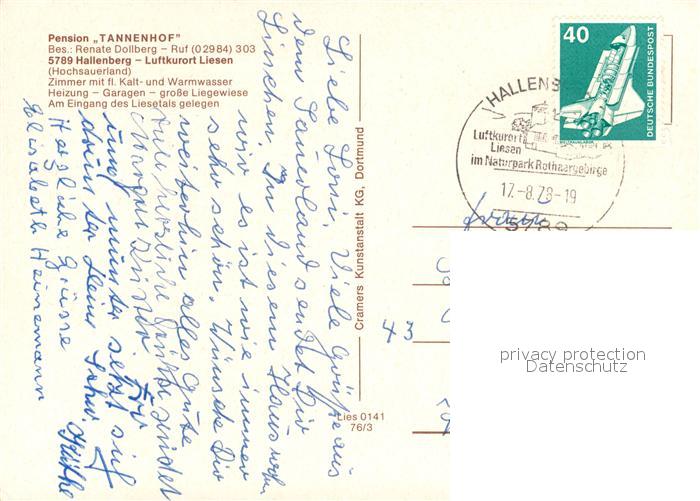 Pension „TANNENHOF"
Bes.: Renate Dollberg – Ruf (0 29 84) 303
5789 Hallenberg – Luftkurort Liesen
(Hochsauerland)
Zimmer mit fl. Kalt- und Warmwasser
Heizung – Garagen – große Liegewiese
Am Eingang des Liesetals gelegen
Liebe Loni. Viele Grüße aus
dem Sauerland sendet Dir
Linchen. In diesem Haus
wir es ist wie immer
sehr schön. Wünsche Dir
weiterhin alles Gute
herzliche Grüße sendet
Margret
und munter setzt sich
drunter
Herzliche Grüsse
Elisabeth Heinemann
Cramers Kunstanstalt KG, Dortmund
Lies 0141
76/3
40
DEUTSCHE BUNDESPOST
HALLENB
Luftkurort
Liesen
im Naturpark Rothaargebirge
17.-8.78-19
5789
Frau
43
privacy protection
Datenschutz